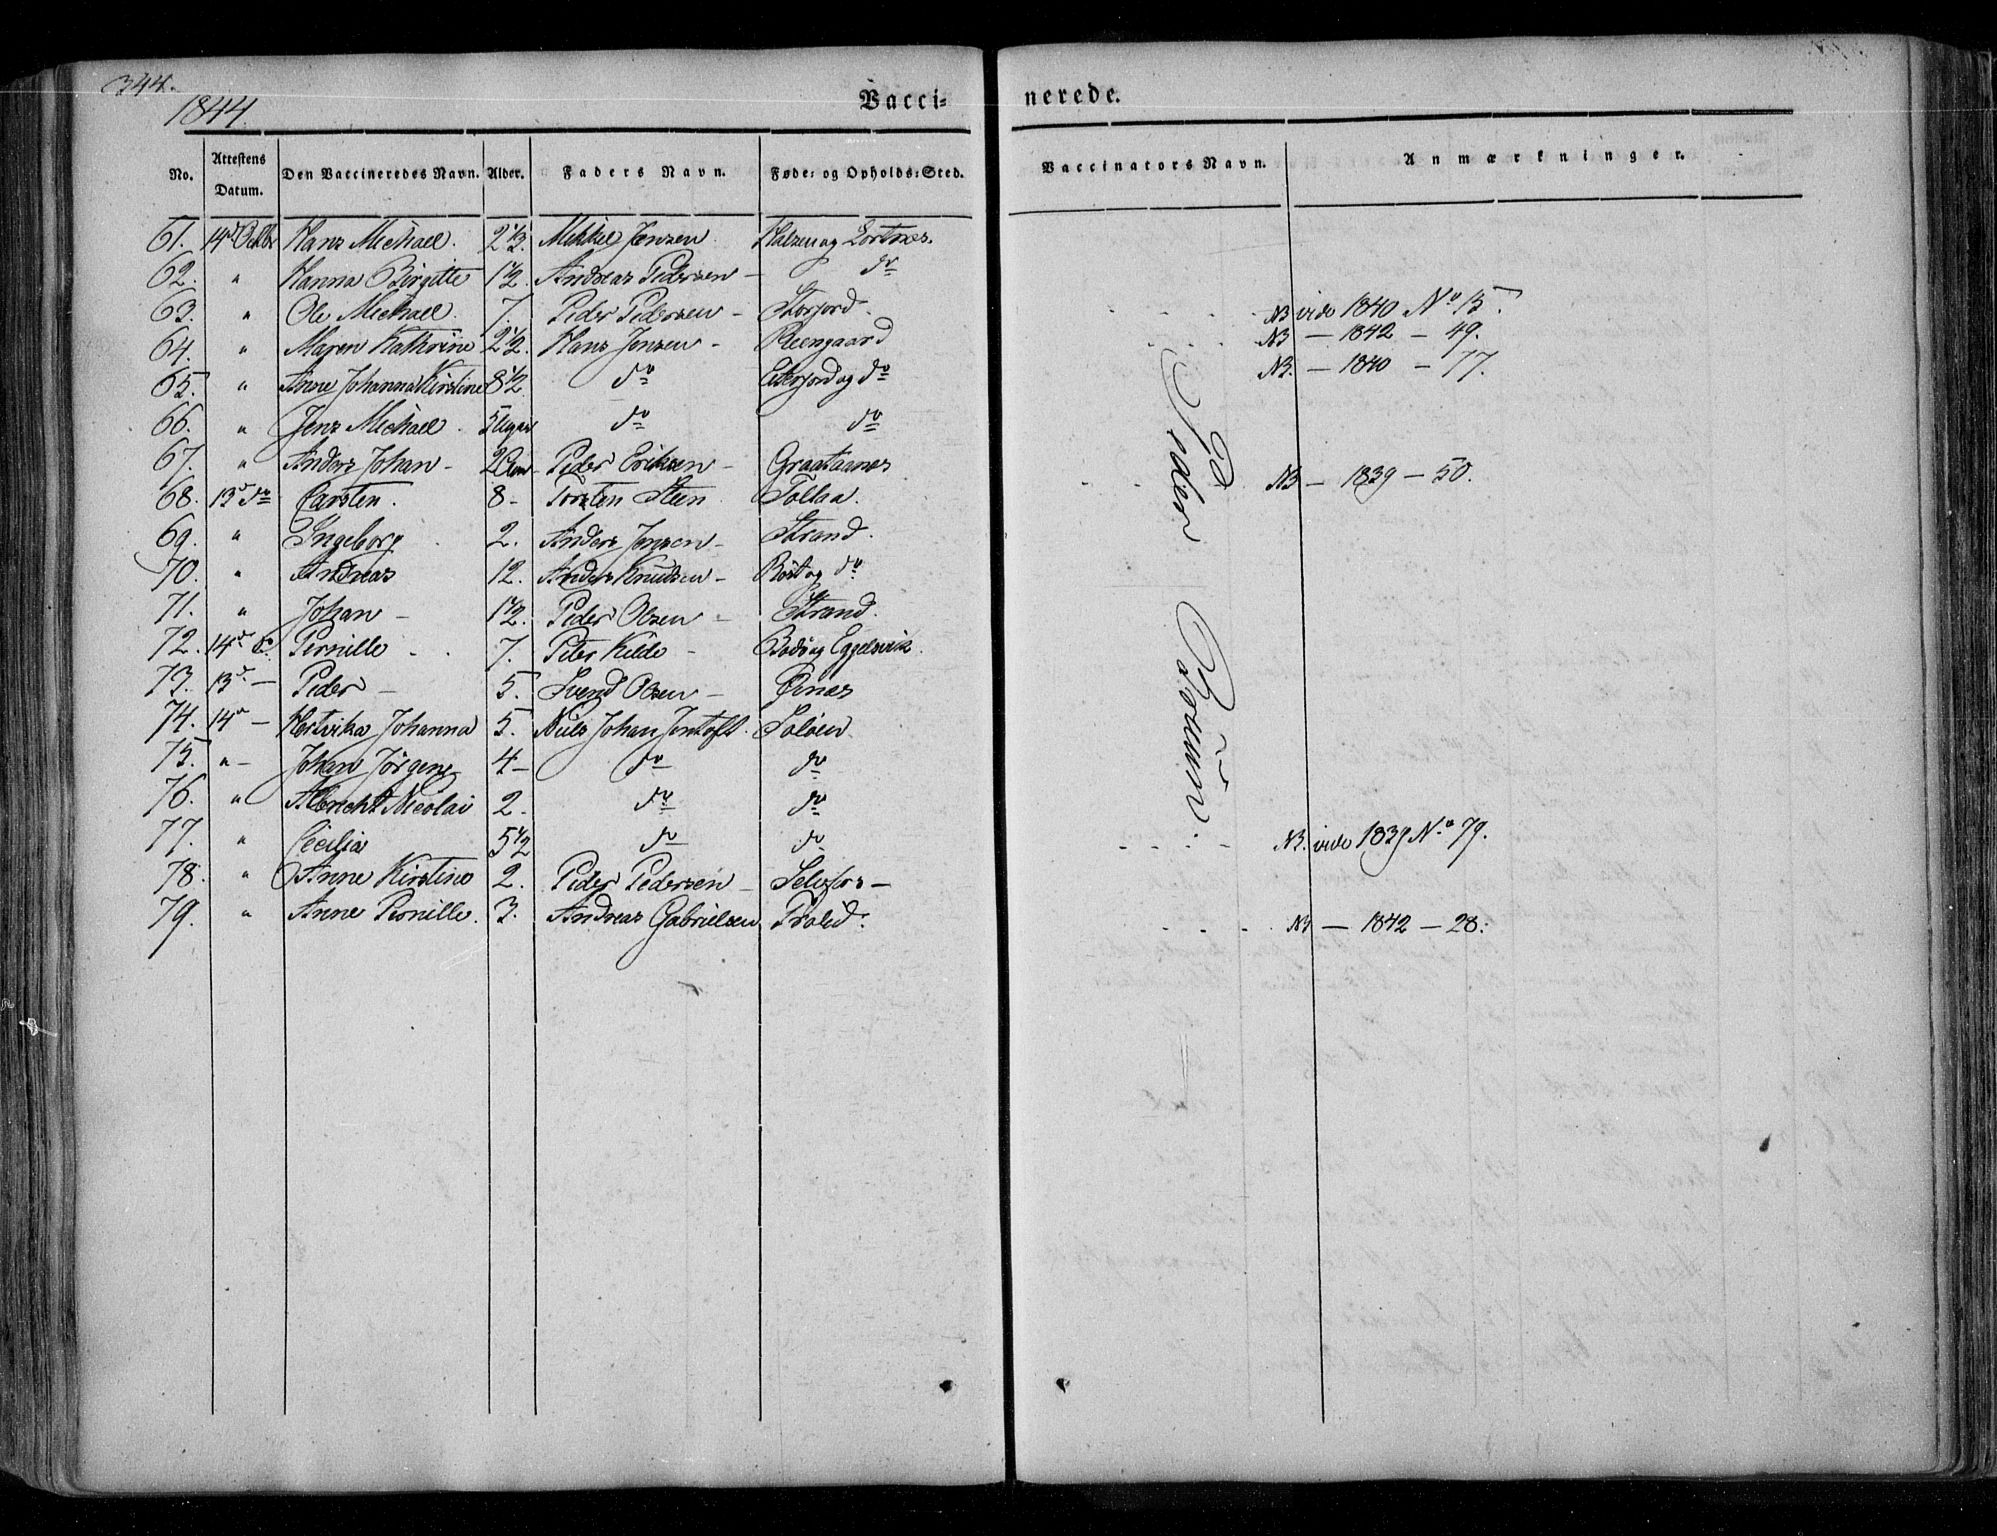 344.
1844
Vacci- nerede.
No. Attestens Datum. Den Vaccineredes Navn. Alder. Faders Navn. Føde- og Opholds-Sted. Vaccinators Navn. Anmærkninger.
61. 14d Octbr Hans Michael. 2 1/3. Mikkel Jensen Halsen og Lortnes.
62. " Hanna Birgitte 1 1/2. Andreas Pedersen - do
63. " Ole Michael. 7. Peder Pedersen - Storjord. NB vide 1840 No 15.
64. " Maren Kathrine 2 1/2. Hans Jensen - Reengaard NB - 1842 - 49.
65. " Anne Johanna Kirstine 8 1/2 do og do NB. - 1840 - 77.
66. " Jens Michael. 5 Uger do do
67. " Anders Johan - 2 Peder Eriksen - Graataanes
68. 13d do Carsten. 8 - Torsten Steen. Tollaa. NB - 1839 - 50.
69. " Ingeborg. 2. Anders Jensen - Strand.
70. " Andreas 12. Anders Knudsen - og do
71. " Johan - 1 1/2. Peder Olsen - Strand.
72. 14d Pernille 7. Peter Kilde - Bodø og
73. 13d - Peder - 5. Svend Olsen - Øinæs
74. 14d - Hertvika Johanna 5. Niels Johan Jentoft. Soløen
75. " - Johan Jørgen 4 - do do
76. " Albrecht Nicolai 2. do do
77. " Cecilia 5 1/2 do do NB. vide 1839 No 79.
78. " Anne Kirstine 2. Peder Pedersen - Selsfors -
79. " Anne Pernille. 3. Andreas Gabrielsen NB - 1842 - 28.
Peder